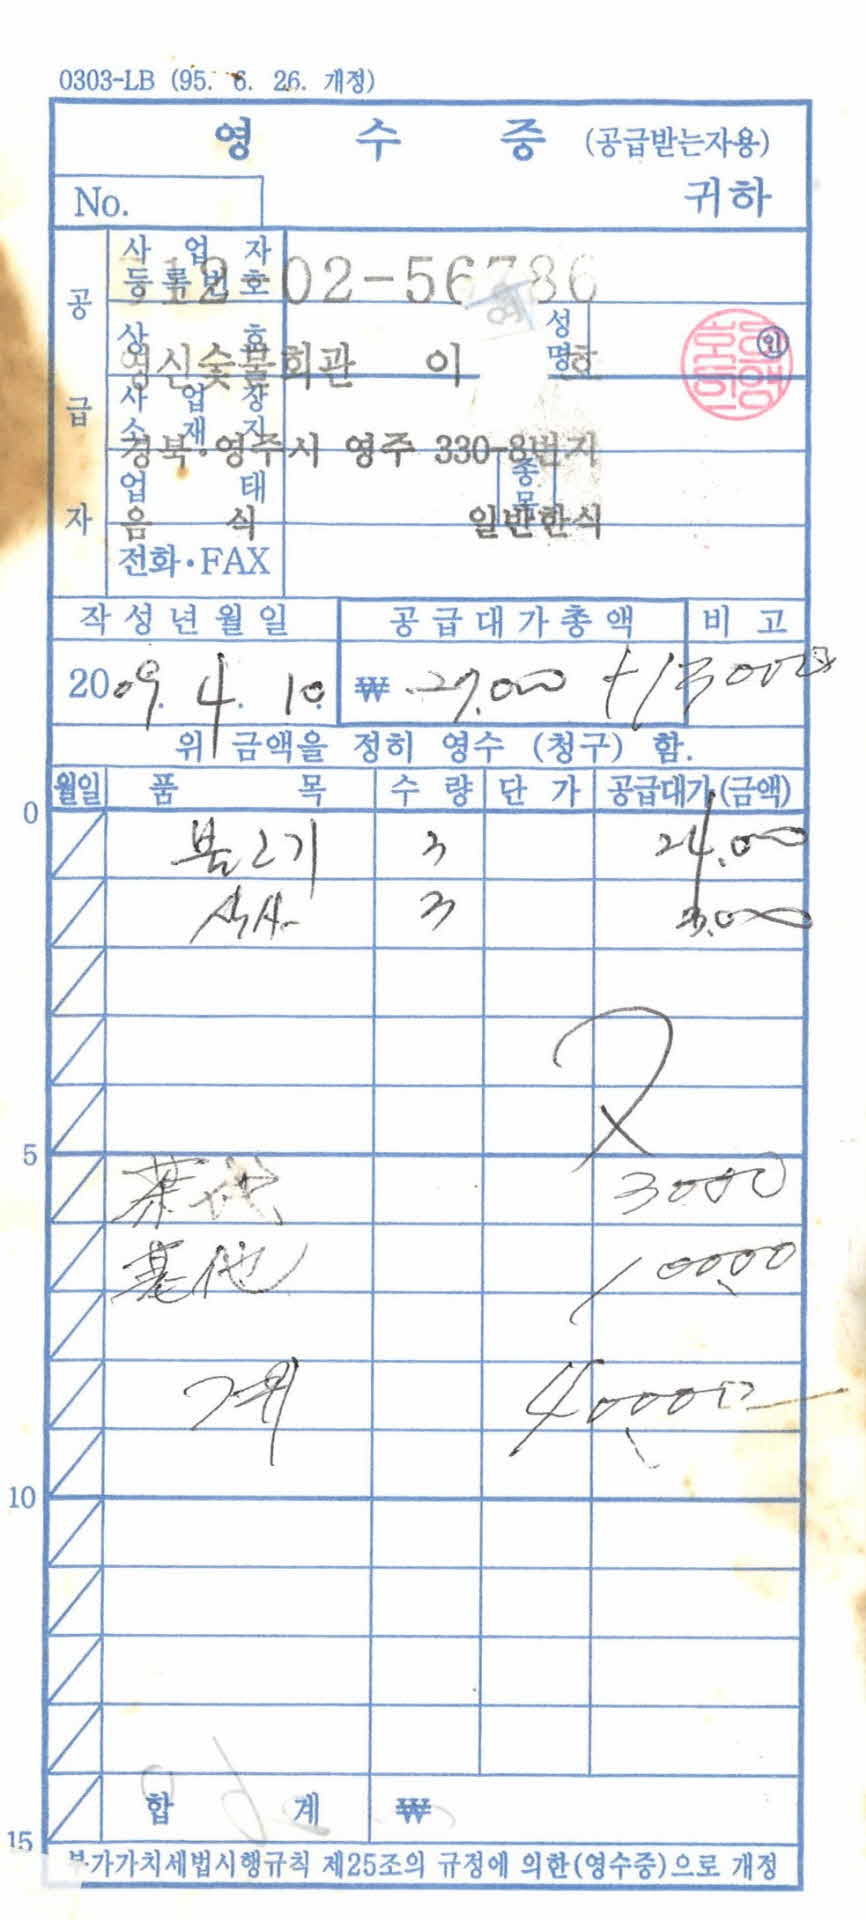 0303-LB (95. 6. 26. 개정)
영 수 증 (공급받는자용)
No. 귀하
공급자
사업자등록번호 02-56786
상호 영신숯불회관 성명 이 호
사업장소재지 경북·영주시 영주 330-8번지
업태 음식 종목 일반한식
전화·FAX
작성년월일 공급대가총액 비고
2009. 4. 10. ₩ 27,000 +13000
위 금액을 정히 영수 (청구) 함.
월일 품목 수량 단가 공급대가(금액)
0
불고기 3 24,000
식사 3 3,000
5
茶代 3000
其他 10000
계 40000
10
합 계 ₩
15
부가가치세법시행규칙 제25조의 규정에 의한(영수증)으로 개정